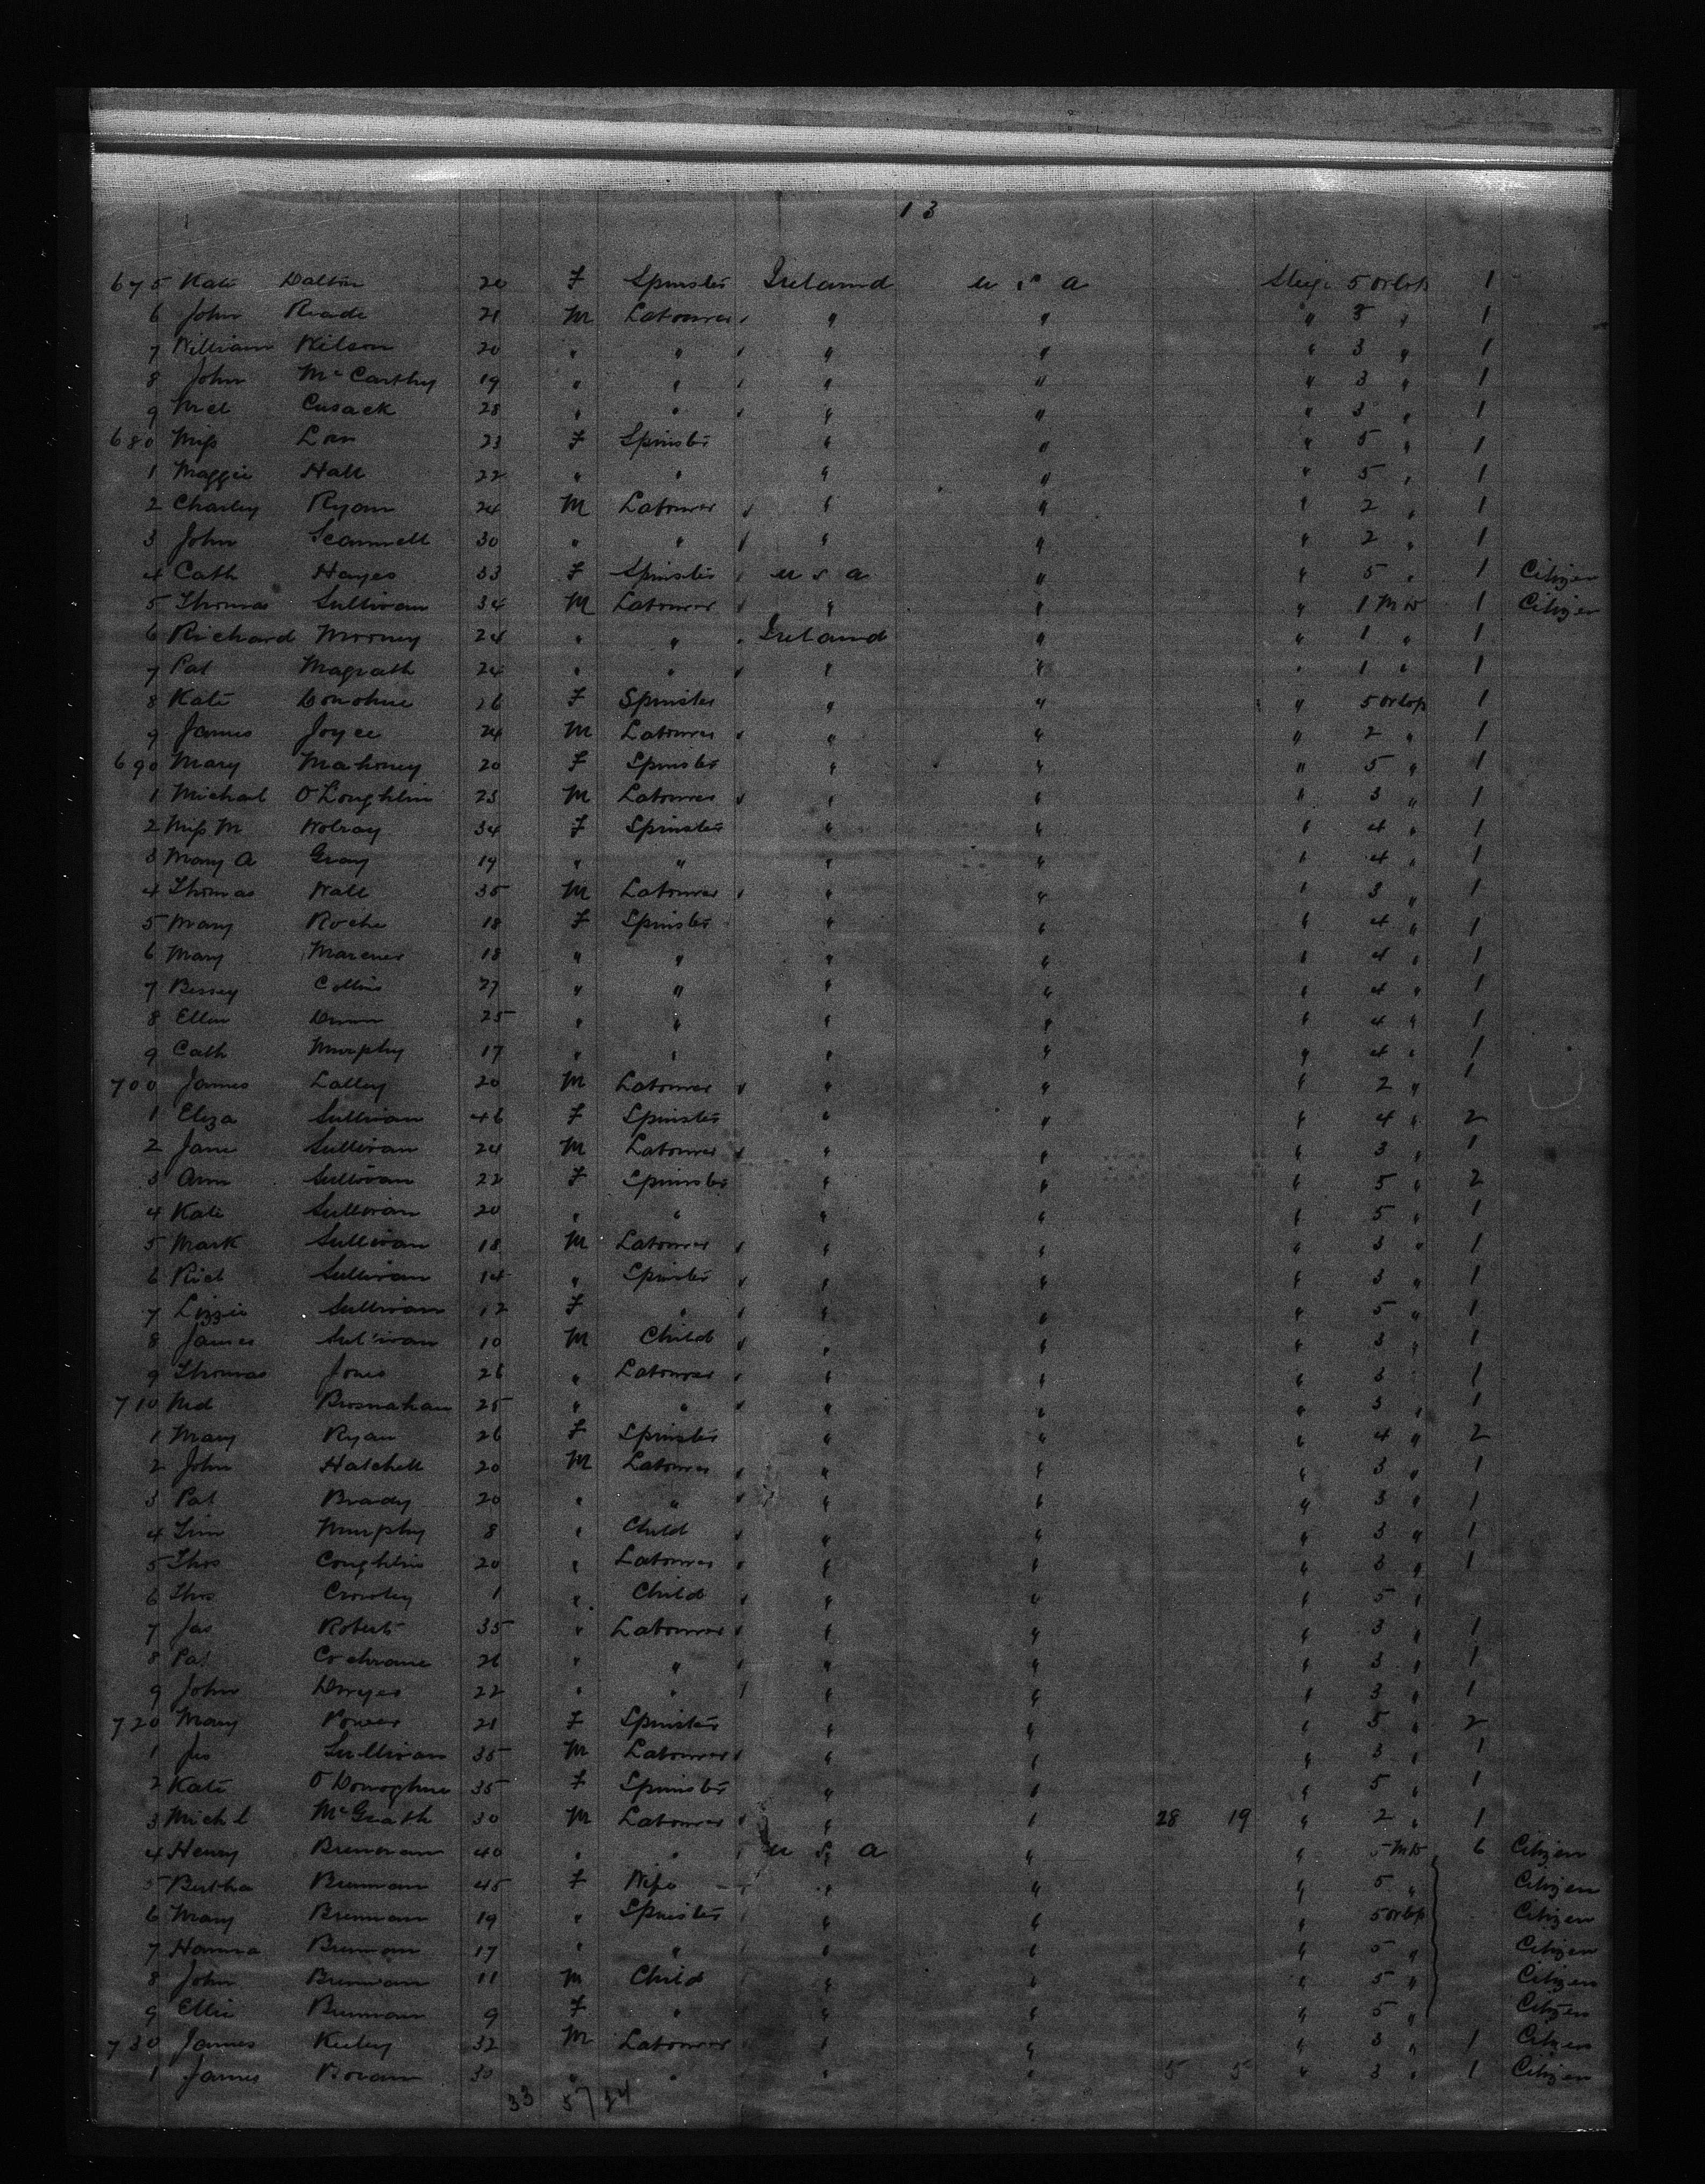 13
675 Kate Dalton 20 F Spinster Ireland U S A Steege 5 Orlop 1
6 John Reade 21 M Labourer " " " 3 " 1
7 William Wilson 20 " " " " " 3 " 1
8 John McCarthy 19 " " " " " 3 " 1
9 Mcl Cusack 28 " " " " " 3 " 1
680 Miss 23 F Spinster " " " 5 " 1
1 Maggie Hall 22 " " " " " 5 " 1
2 Charley Ryan 24 M Labourer " " " 2 " 1
3 John Scannell 30 " " " " " 2 " 1
4 Cath Hayes 33 F Spinster U S A " " 5 " 1 Citizen
5 Thomas Sullivan 34 M Labourer " " " 1 M D 1 Citizen
6 Richard Mooney 24 " " Ireland " " 1 " 1
7 Pat Magrath 24 " " " " " 1 " 1
8 Kate Donohue 26 F Spinster " " " 5 Orlop 1
9 James Joyce 24 M Labourer " " " 2 " 1
690 Mary Mahoney 20 F Spinster " " " 5 " 1
1 Michael O'Loughlin 23 M Labourer " " " 3 " 1
2 Miss M 34 F Spinster " " " 4 " 1
3 Mary A Gray 19 " " " " " 4 " 1
4 Thomas Wall 35 M Labourer " " " 3 " 1
5 Mary Roche 18 F Spinster " " " 4 " 1
6 Mary 18 " " " " " 4 " 1
7 Bessey Collins 27 " " " " " 4 " 1
8 Ellen Dunn 25 " " " " " 4 " 1
9 Cath Murphy 17 " " " " " 4 " 1
700 James Lalley 20 M Labourer " " " 2 " 1
1 Eliza Sullivan 46 F Spinster " " " 4 " 2
2 Jame Sullivan 24 M Labourer " " " 3 " 1
3 Ann Sullivan 22 F Spinster " " " 5 " 2
4 Kate Sullivan 20 " " " " " 5 " 1
5 Mark Sullivan 18 M Labourer " " " 3 " 1
6 Rich Sullivan 14 " Spinster " " " 3 " 1
7 Lizzie Sullivan 12 F " " " " 5 " 1
8 James Sullivan 10 M Child " " " 3 " 1
9 Thomas Jones 26 " Labourer " " " 3 1
710 Md Brosnahan 25 " " " " " 3 " 1
1 Mary Ryan 26 F Spinster " " " 4 " 2
2 John Hatchell 20 M Labourer " " " 3 " 1
3 Pat Brady 20 " " " " " 3 " 1
4 Tim Murphy 8 " Child " " " 3 " 1
5 Thos Coughlin 20 " Labourer " " " 3 " 1
6 Thos Crowley 1 " Child " " " 5 "
7 Jas Roberts 35 " Labourer " " " 3 " 1
8 Pat Cochrane 26 " " " " " 3 " 1
9 John Dwyer 22 " " " " " 3 " 1
720 Mary Power 21 F Spinster " " " 5 " 2
1 Jas Sullivan 35 M Labourer " " " 3 " 1
2 Kate O'Donoghue 35 F Spinster " " " 5 " 1
3 Michl McGrath 30 M Labourer " " 28 19 " 2 " 1
4 Henry Brennan 40 " " U S A " " 5 M D 6 Citizen
5 Bertha Brennan 45 F Wife " " " 5 " Citizen
6 Mary Brennan 19 " Spinster " " " 5 Orlop Citizen
7 Hanna Brennan 17 " " " " " 5 " Citizen
8 John Brennan 11 M Child " " " 5 " Citizen
9 Ellie Brennan 9 F " " " " 5 " Citizen
730 James Keiley 32 M Labourer " " " 3 " 1 Citizen
1 James 30 " " " " 5 5 " 3 " 1 Citizen
33 57/24